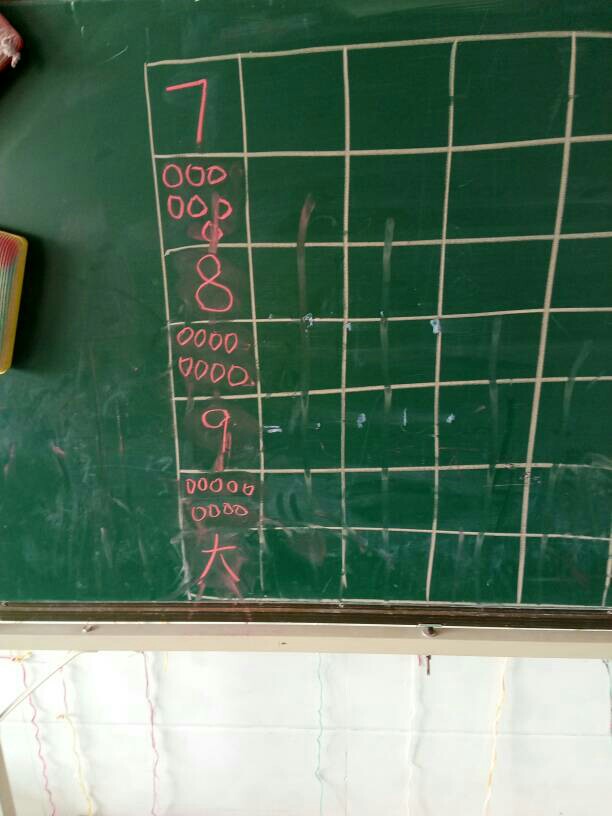 7
8
9
大